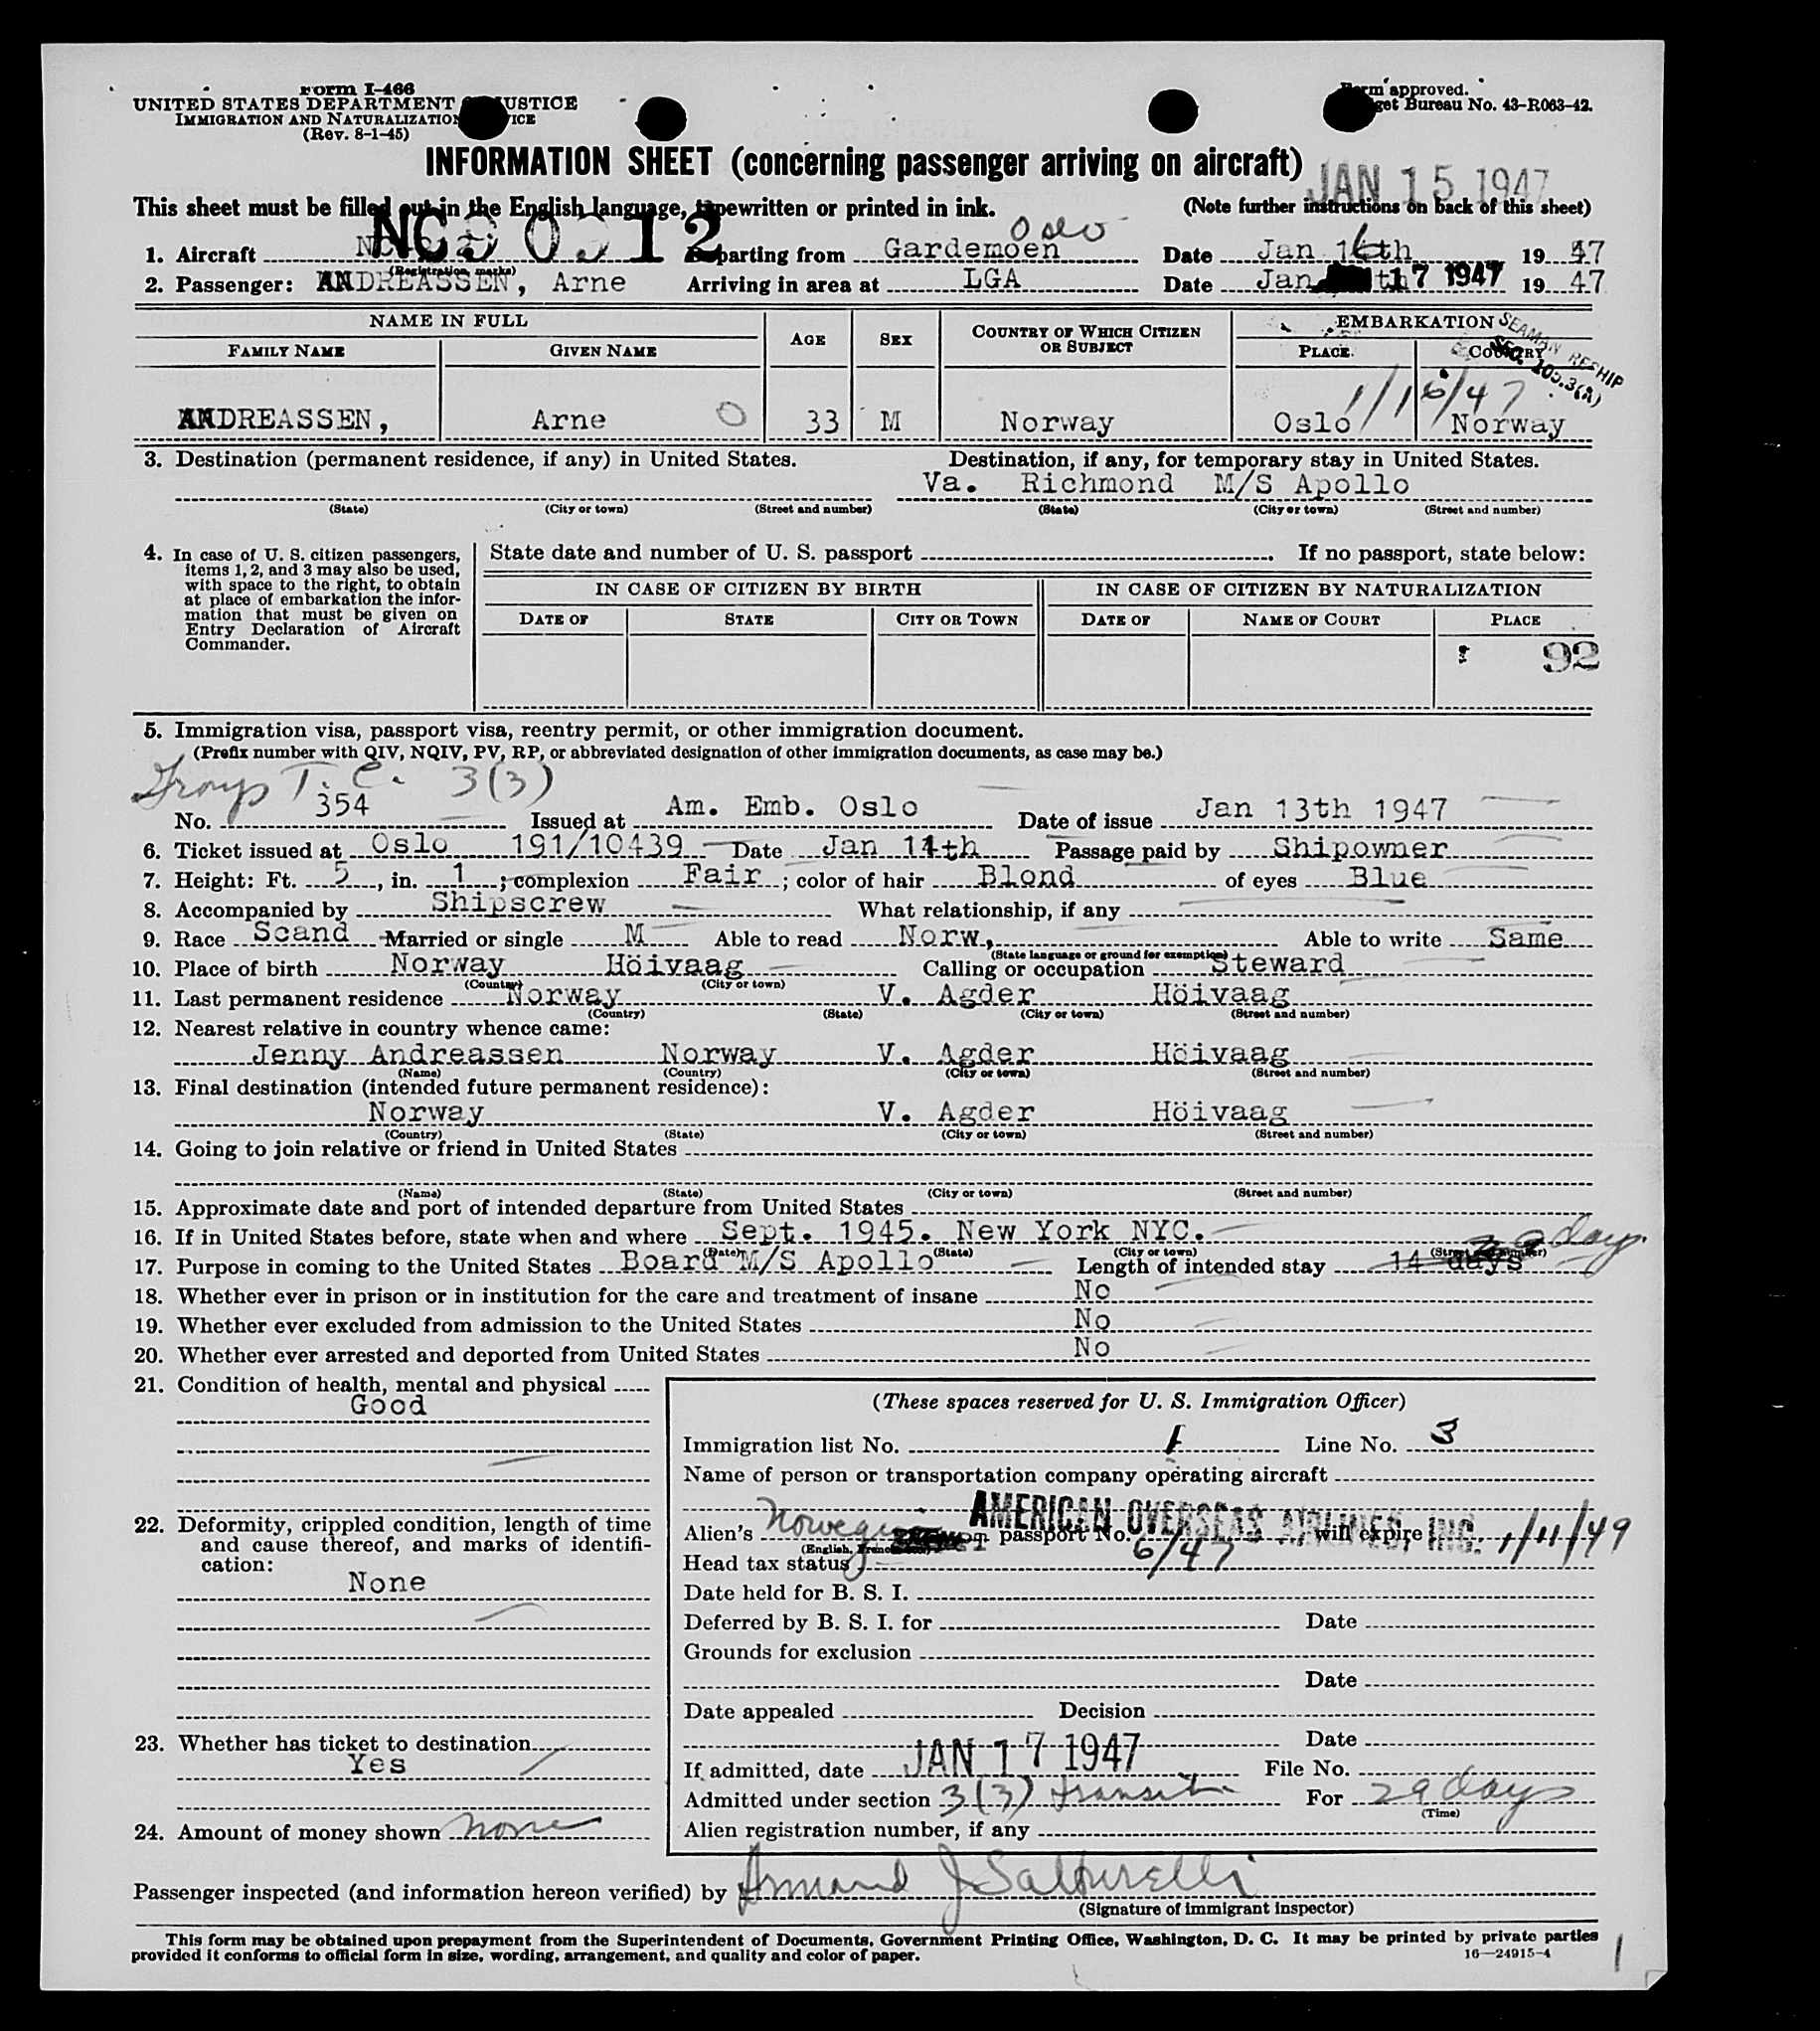 Form I-466
UNITED STATES DEPARTMENT JUSTICE
IMMIGRATION AND NATURALIZATION
(Rev. 8-1-45)
Form approved.
Budget Bureau No. 43-R063-42.
INFORMATION SHEET (concerning passenger arriving on aircraft)
JAN 15 1947
This sheet must be filled out in the English language, typewritten or printed in ink. (Note further instructions on back of this sheet)
Oslo
1. Aircraft NC90912 Departing from Gardemoen Date Jan 16th 1947
(Registration marks)
2. Passenger: ANDREASSEN, Arne Arriving in area at LGA Date Jan 17 1947 1947
NAME IN FULL AGE SEX COUNTRY OF WHICH CITIZEN OR SUBJECT EMBARKATION
FAMILY NAME GIVEN NAME PLACE COUNTRY
SEAMAN RESHIP
1/16/47
ANDREASSEN, Arne O 33 M Norway Oslo Norway
3. Destination (permanent residence, if any) in United States. Destination, if any, for temporary stay in United States.
Va. Richmond M/S Apollo
(State) (City or town) (Street and number) (State) (City or town) (Street and number)
4. In case of U. S. citizen passengers, items 1, 2, and 3 may also be used, with space to the right, to obtain at place of embarkation the information that must be given on Entry Declaration of Aircraft Commander.
State date and number of U. S. passport . If no passport, state below:
IN CASE OF CITIZEN BY BIRTH IN CASE OF CITIZEN BY NATURALIZATION
DATE OF STATE CITY OR TOWN DATE OF NAME OF COURT PLACE
92
5. Immigration visa, passport visa, reentry permit, or other immigration document.
(Prefix number with QIV, NQIV, PV, RP, or abbreviated designation of other immigration documents, as case may be.)
Group T. C. 3(3)
No. 354 Issued at Am. Emb. Oslo Date of issue Jan 13th 1947
6. Ticket issued at Oslo 191/10439 Date Jan 14th Passage paid by Shipowner
7. Height: Ft. 5, in. 1; complexion Fair; color of hair Blond of eyes Blue
8. Accompanied by Shipscrew What relationship, if any
9. Race Scand Married or single M Able to read Norw, Able to write Same
(State language or ground for exemption)
10. Place of birth Norway Höivaag Calling or occupation Steward
(Country) (City or town)
11. Last permanent residence Norway V. Agder Höivaag
(Country) (State) (City or town) (Street and number)
12. Nearest relative in country whence came:
Jenny Andreassen Norway V. Agder Höivaag
(Name) (Country) (City or town) (Street and number)
13. Final destination (intended future permanent residence):
Norway V. Agder Höivaag
(Country) (State) (City or town) (Street and number)
14. Going to join relative or friend in United States
(Name) (State) (City or town) (Street and number)
15. Approximate date and port of intended departure from United States
16. If in United States before, state when and where Sept. 1945. New York NYC.
(Date) (State) (City or town) (Street and number)
29 days
17. Purpose in coming to the United States Board M/S Apollo Length of intended stay 14 days
18. Whether ever in prison or in institution for the care and treatment of insane No
19. Whether ever excluded from admission to the United States No
20. Whether ever arrested and deported from United States No
21. Condition of health, mental and physical
Good
22. Deformity, crippled condition, length of time and cause thereof, and marks of identification:
None
23. Whether has ticket to destination
Yes
24. Amount of money shown none
(These spaces reserved for U. S. Immigration Officer)
Immigration list No. 1 Line No. 3
Name of person or transportation company operating aircraft
AMERICAN OVERSEAS AIRLINES, INC.
Alien's Norwegian passport No. will expire 1/11/49
6/47
Head tax status
Date held for B. S. I.
Deferred by B. S. I. for Date
Grounds for exclusion
Date
Date appealed Decision
Date
If admitted, date JAN 17 1947 File No.
Admitted under section 3(3) transit For 29 days
(Time)
Alien registration number, if any
Passenger inspected (and information hereon verified) by Armand J Salturelli
(Signature of immigrant inspector)
This form may be obtained upon prepayment from the Superintendent of Documents, Government Printing Office, Washington, D. C. It may be printed by private parties
provided it conforms to official form in size, wording, arrangement, and quality and color of paper. 16—24915-4
1